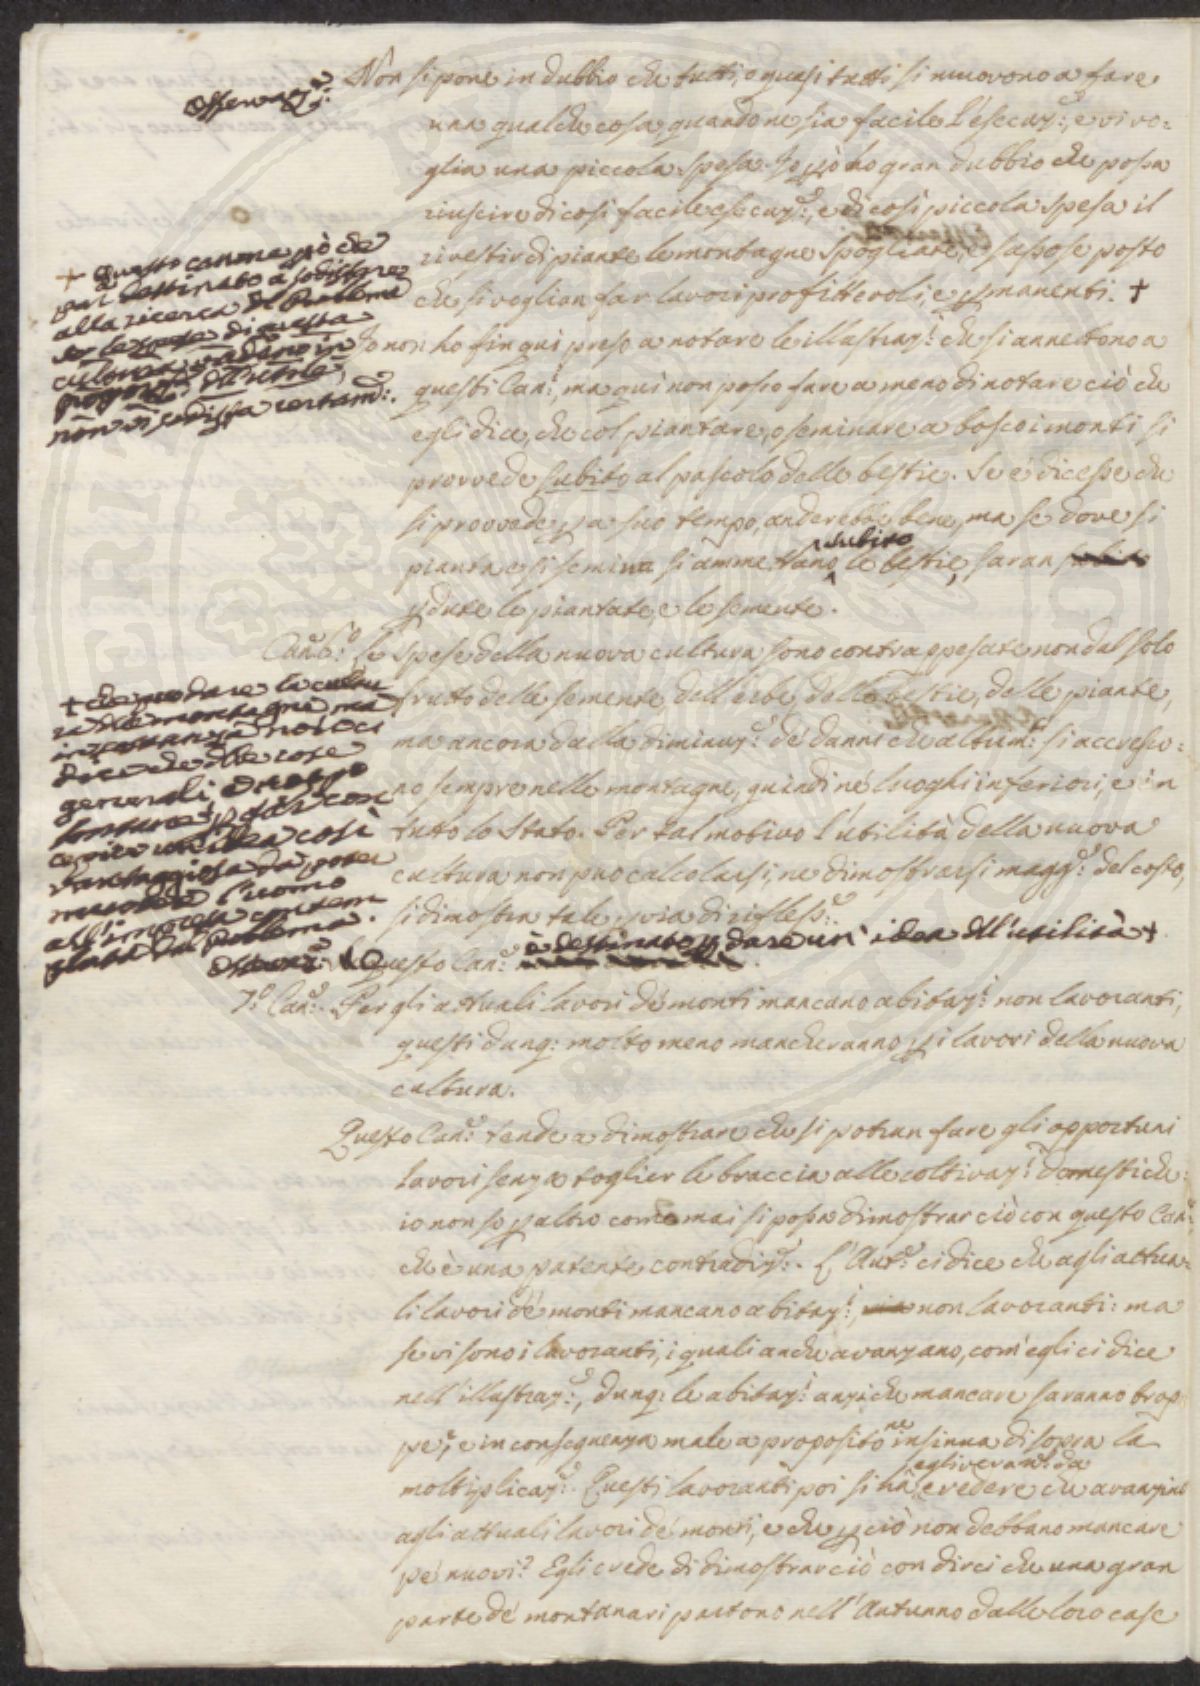 Osservaz.e:
Non si pone in dubbio che tutti, o quasi tutti si muovono a fare
una qualche cosa quando ne sia facile l'esecuz.e:, e vi vo=
glia una piccola spesa. Io però ho gran dubbio che possa
riuscire di così facile esecuz.e:, e di così piccola spesa il
rivestir di piante le montagne spogliate, e sassose posto
che si voglian far lavori profittevoli, e permanenti. +
+ Questo canone però che
par destinato a sodisfare
alla ricerca del Problema
se le spese di questa
cultura vadano in
proporz.e: dell'utile,
non vi sodisfa certam.e:.
Io non ho fin qui preso a notare le illustraz.i: che si annettono a
questi Can.i: ma qui non posso fare a meno di notare ciò che
egli dice, che col piantare, o seminare a bosco i monti si
provvede subito al pascolo delle bestie. Se e' dicesse che
si provvede per a suo tempo, anderebbe bene, ma se dove si
pianta e si semina si ammettano subito le bestie, saran
perdute le piantate, e le semente.
Can.e 6.o: Le spese della nuova cultura sono contrappesate non dal solo
frutto delle semente, dell'erbe, delle bestie, delle piante,
ma ancora dalla diminuz.e: de' danni che altrim.i: si accresco=
no sempre nelle montagne, quindi ne' luoghi inferiori, e in
tutto lo Stato. Per tal motivo l'utilità della nuova
cultura non può calcolarsi, ne dimostrarsi magg.e: del costo,
si dimostra tale per via di rifless.e:.
Osservaz.e: Questo Can.e: è destinato per dare un' idea dell'utilità +
+ che può dare la cultu-
ra delle montagne, ma
in sostanza non ci
dice che delle cose
generali
cepire un'idea così
vantaggiosa da poter
muovere l'uomo
all'impresa contem
plata dal Problema.
7.o Can.e: Per gli attuali lavori de' monti mancano abitaz.i: non lavoranti,
questi dunq: molto meno mancheranno per i lavori della nuova
cultura.
Questo Can.e: tende a dimostrare che si potran fare gli opportuni
lavori senza toglier le braccia alle coltivaz.i: domestiche:
io non so per altro come mai si possa dimostrar ciò con questo Can.e:
che è una patente contradiz.e:. L'Aut.e: ci dice che agli attua=
li lavori de' monti mancano abitaz.i:, non lavoranti: ma
se vi sono i lavoranti, i quali anche avanzano, com'egli ci dice
nell'illustraz.e:, dunq: le abitaz.i: anziche mancare saranno trop
pe, e in conseguenza male a proposito ne insinua di sopra la
moltiplicaz.e:. Questi lavoranti poi si hà egli veram.e: da credere che avanzino
agli attuali lavori de' monti, e che per ciò non debbano mancare
pe' nuovi? Egli crede di dimostrar ciò con dirci che una gran
parte de' montanari partono nell'Autunno dalle loro case